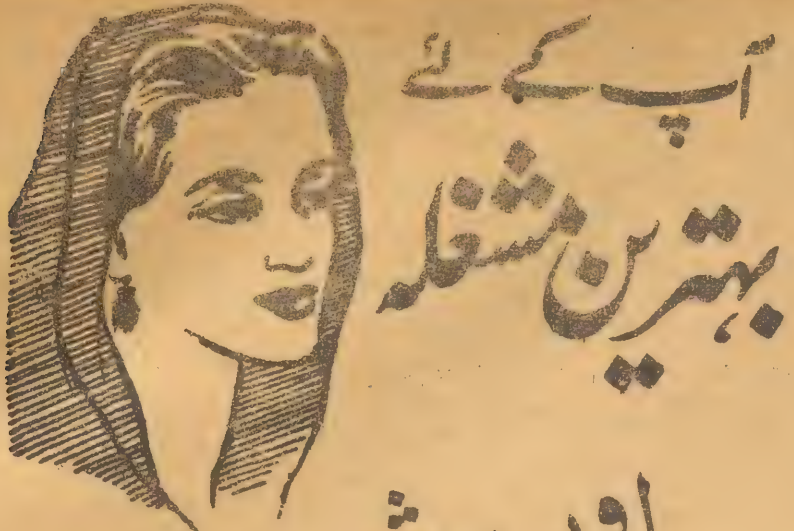 آپ کے لئے
بہترین مشغلہ